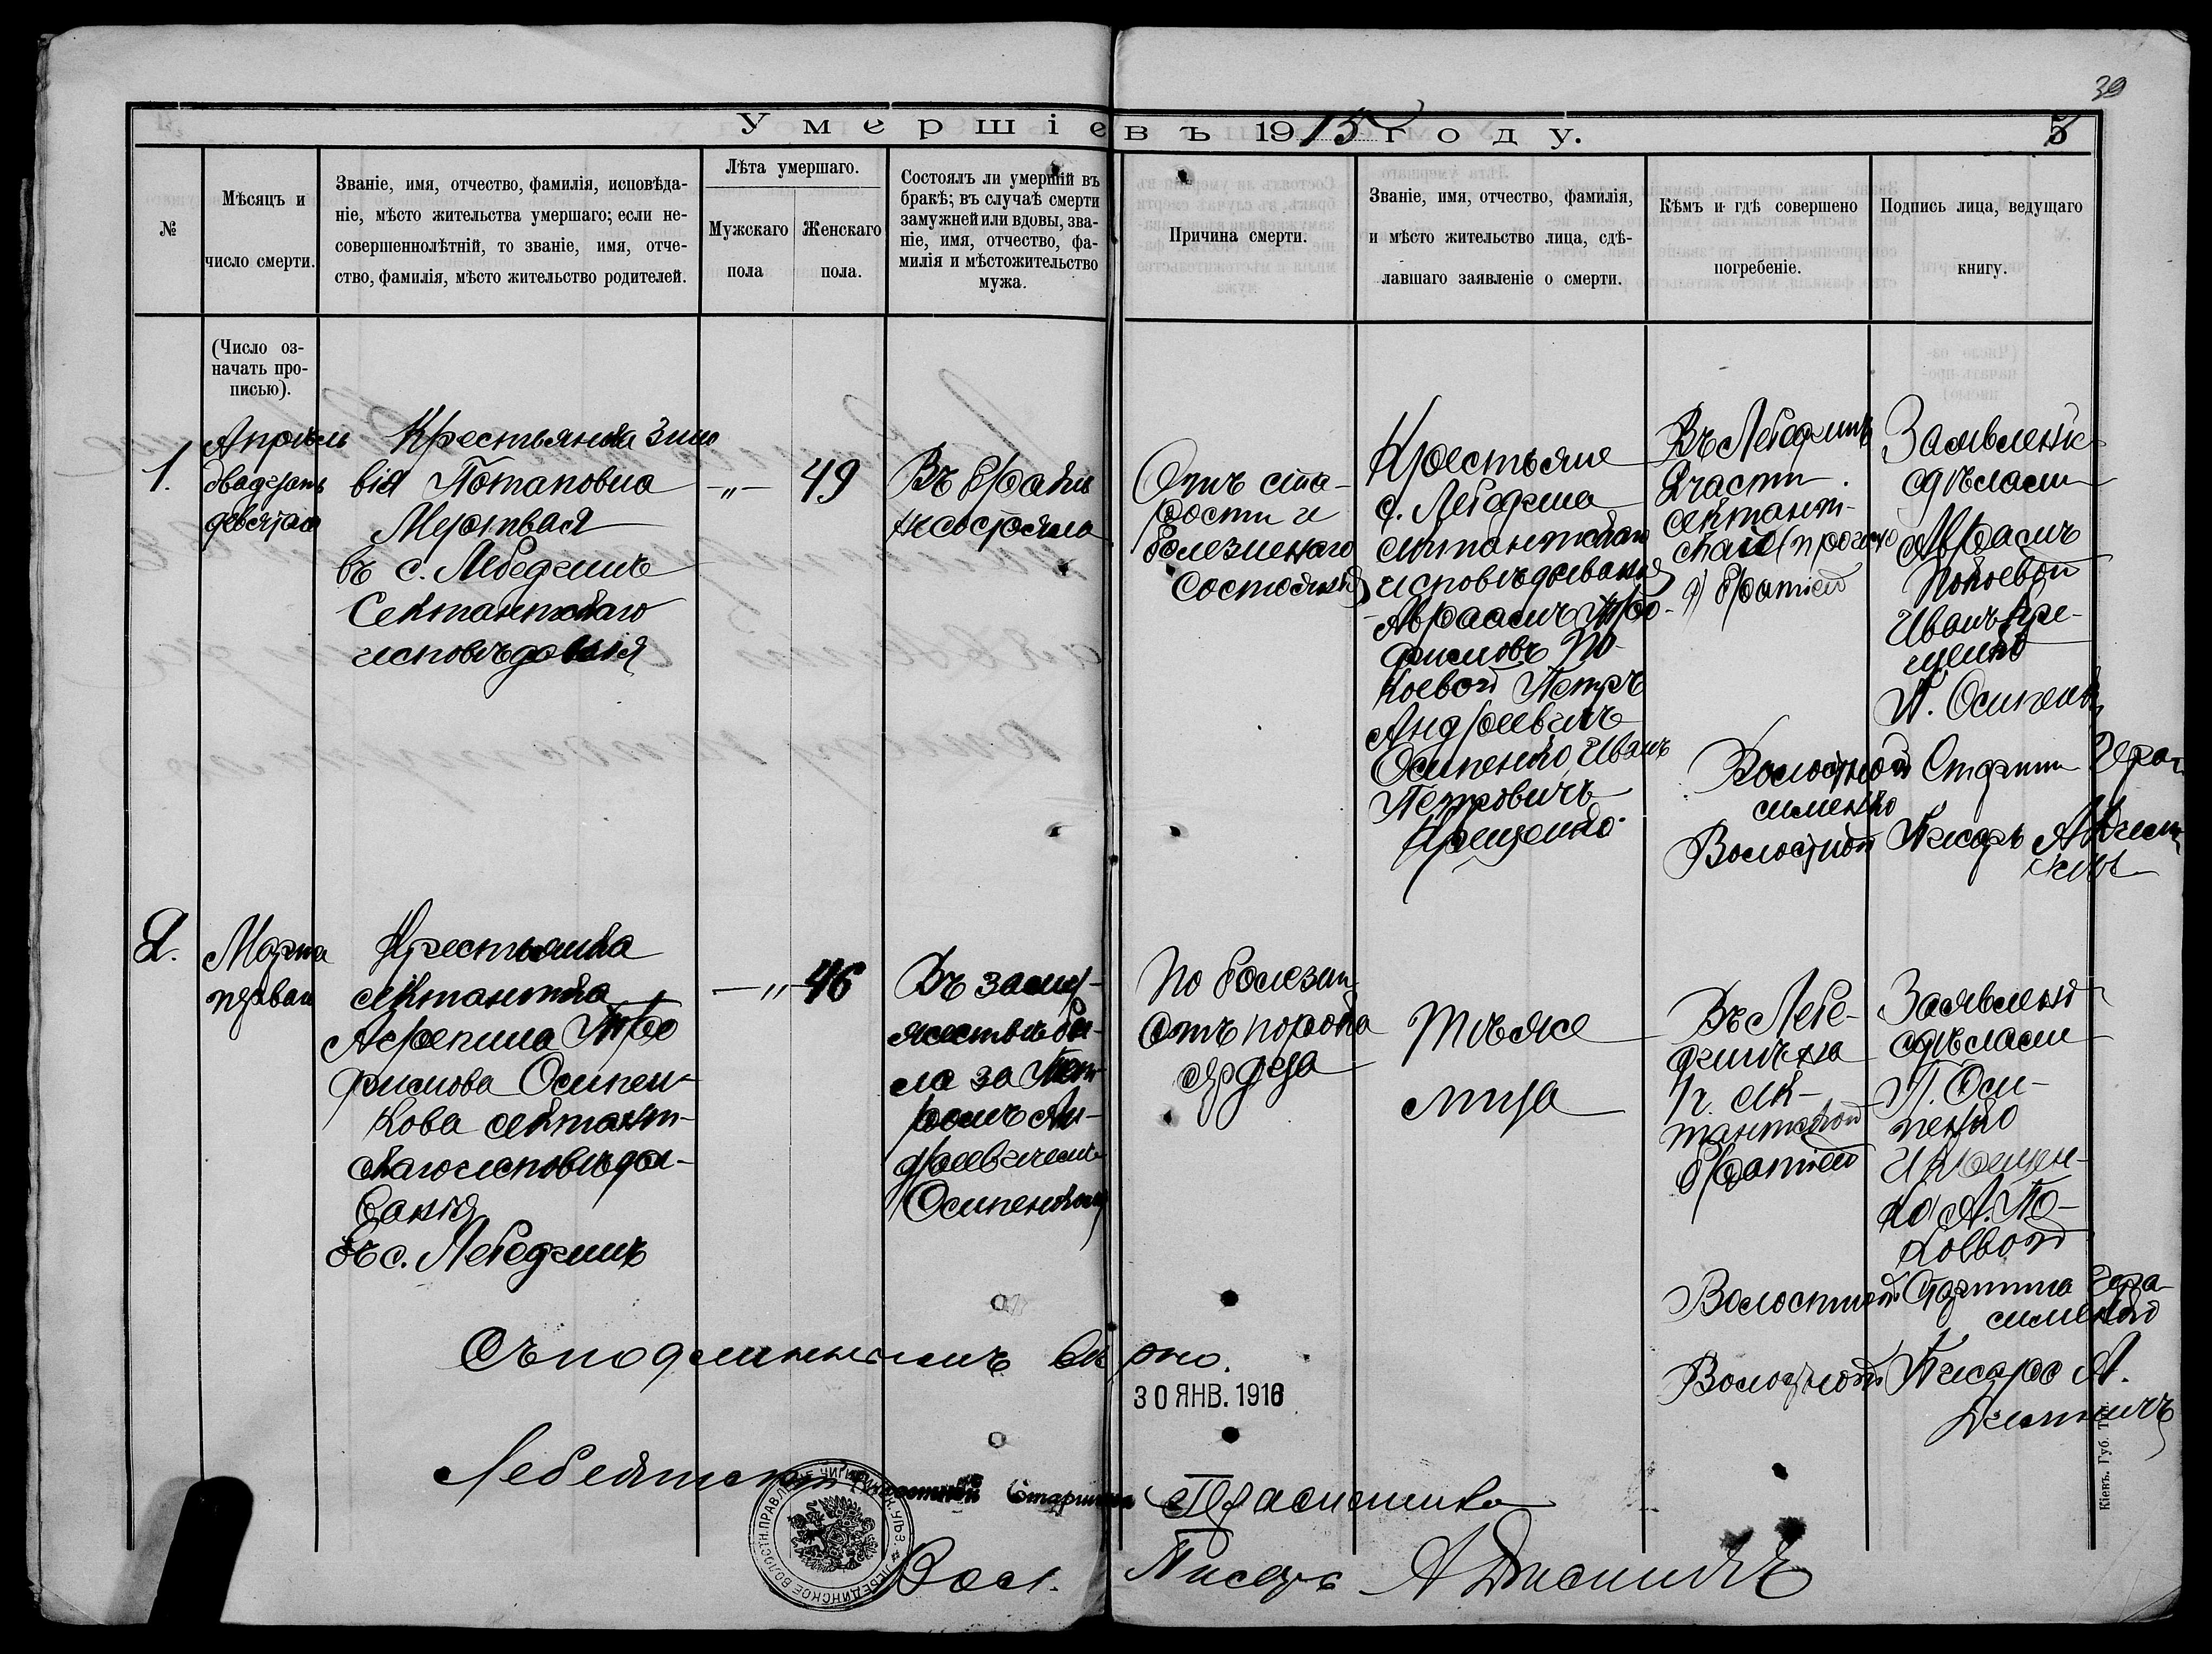 39
Умершіе въ 1915 году.
5
№
Мѣсяцъ и
число смерти.
Званіе, имя, отчество, фамилія, исповѣда-
ніе, мѣсто жительства умершаго; если не-
совершеннолѣтній, то званіе, имя, отче-
ство, фамилія, мѣсто жительство родителей.
Лѣта умершаго.
Мужскаго
пола
Женскаго
пола.
Состоялъ ли умершій въ
бракѣ; въ случаѣ смерти
замужней или вдовы, зва-
ніе, имя, отчество, фа-
милія и мѣстожительство
мужа.
Причина смерти.
Званіе, имя, отчество, фамилія,
и мѣсто жительство лица, сдѣ-
лавшаго заявленіе о смерти.
Кѣмъ и гдѣ совершено
погребеніе.
Подпись лица, ведущаго
книгу.
(Число оз-
начать про-
писью).
1.
Апрѣль
двадцать
девятаго
Крестьянка Зино
вія Потаповна
Мертвая
въ с. Лебединѣ
Сектантскаго
исповѣданія
-„-
49
Въ бракѣ
не состояла
Отъ ста-
рости и
болезненаго
Состоянія
Крестьяне
с. Лебедина
сектантскаго
исповѣдыванія
Авраамъ Тро-
фимовъ По-
коевой Петръ
Андреевичъ
Осипенко, Иванъ
Петровичъ
Крещенко.
Въ Лебединѣ
2 части
сектант-
ской
братіей
Заявленіе
сдѣлали
Авраамъ
Покоевой
Иванъ Кре-
щенко
П. Осипенко
Волостной Старшина Гера-
сименко
Волостной Писарь А
2.
Марта
перваго
Крестьянка
сектантка
Агрепина Тро
фимова Осипен-
кова сектант-
скаго исповѣды-
ванія
въ с. Лебединѣ
-„-
46
Въ заму-
жествѣ бы-
ла за Пет-
ромъ Ан-
дреевичемъ
Осипенкомъ
По болезни
Отъ порока
сердца
Тѣ же
лица
Въ Лебе-
динѣ на
сек-
тантской
братіей
Заявленіе
сдѣлали
П. Оси-
пенко
И Крещен-
ко А. По-
коевой
Волостной Старшина Гера-
сименко
Волостной Писарь А.
Съ подлиннымъ вѣрно.
30 ЯНВ. 1916
Лебединскій Волостной Старшина Герасименко
Вол. Писарь А
ЛЕБЕДИНСКОЕ ВОЛОСТН. ПРАВЛЕНІЕ ЧИГИРИНСК. УѢЗ.
Кіевъ. Губ. Тип.